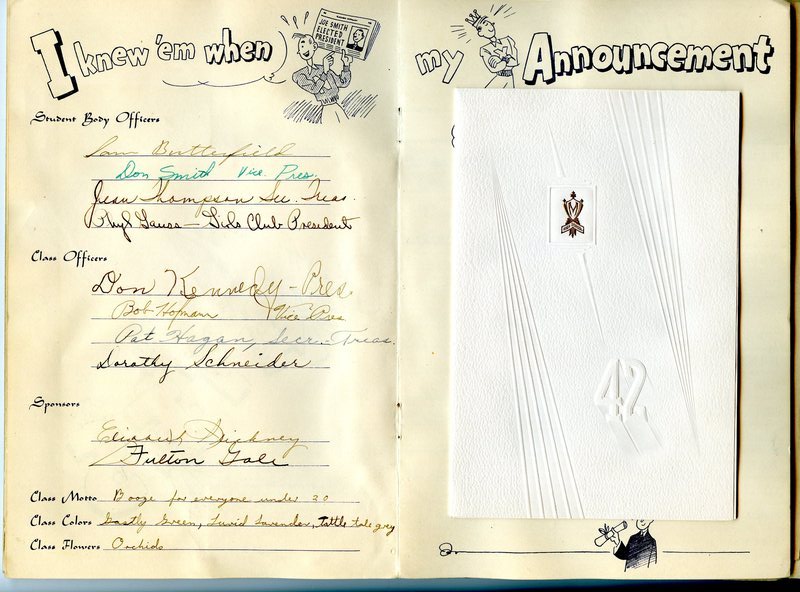 I knew 'em when
JOE SMITH
ELECTED
PRESIDENT
Student Body Officers
Sam Butterfield
Don Smith Vice Pres.
Jean Thompson Sec. Treas.
Phyl Gauss — Girls Club President
Class Officers
Don Kennedy - Pres
Bob Hofmann Vice Pres
Pat Hagan, Secr.-Treas.
Dorothy Schneider
Sponsors
Fulton Gale
Class Motto Booze for everyone under 20
Class Colors Gastly Green, Lurid Lavender, tattle tale grey
Class Flowers Orchids
my Announcement
M
42